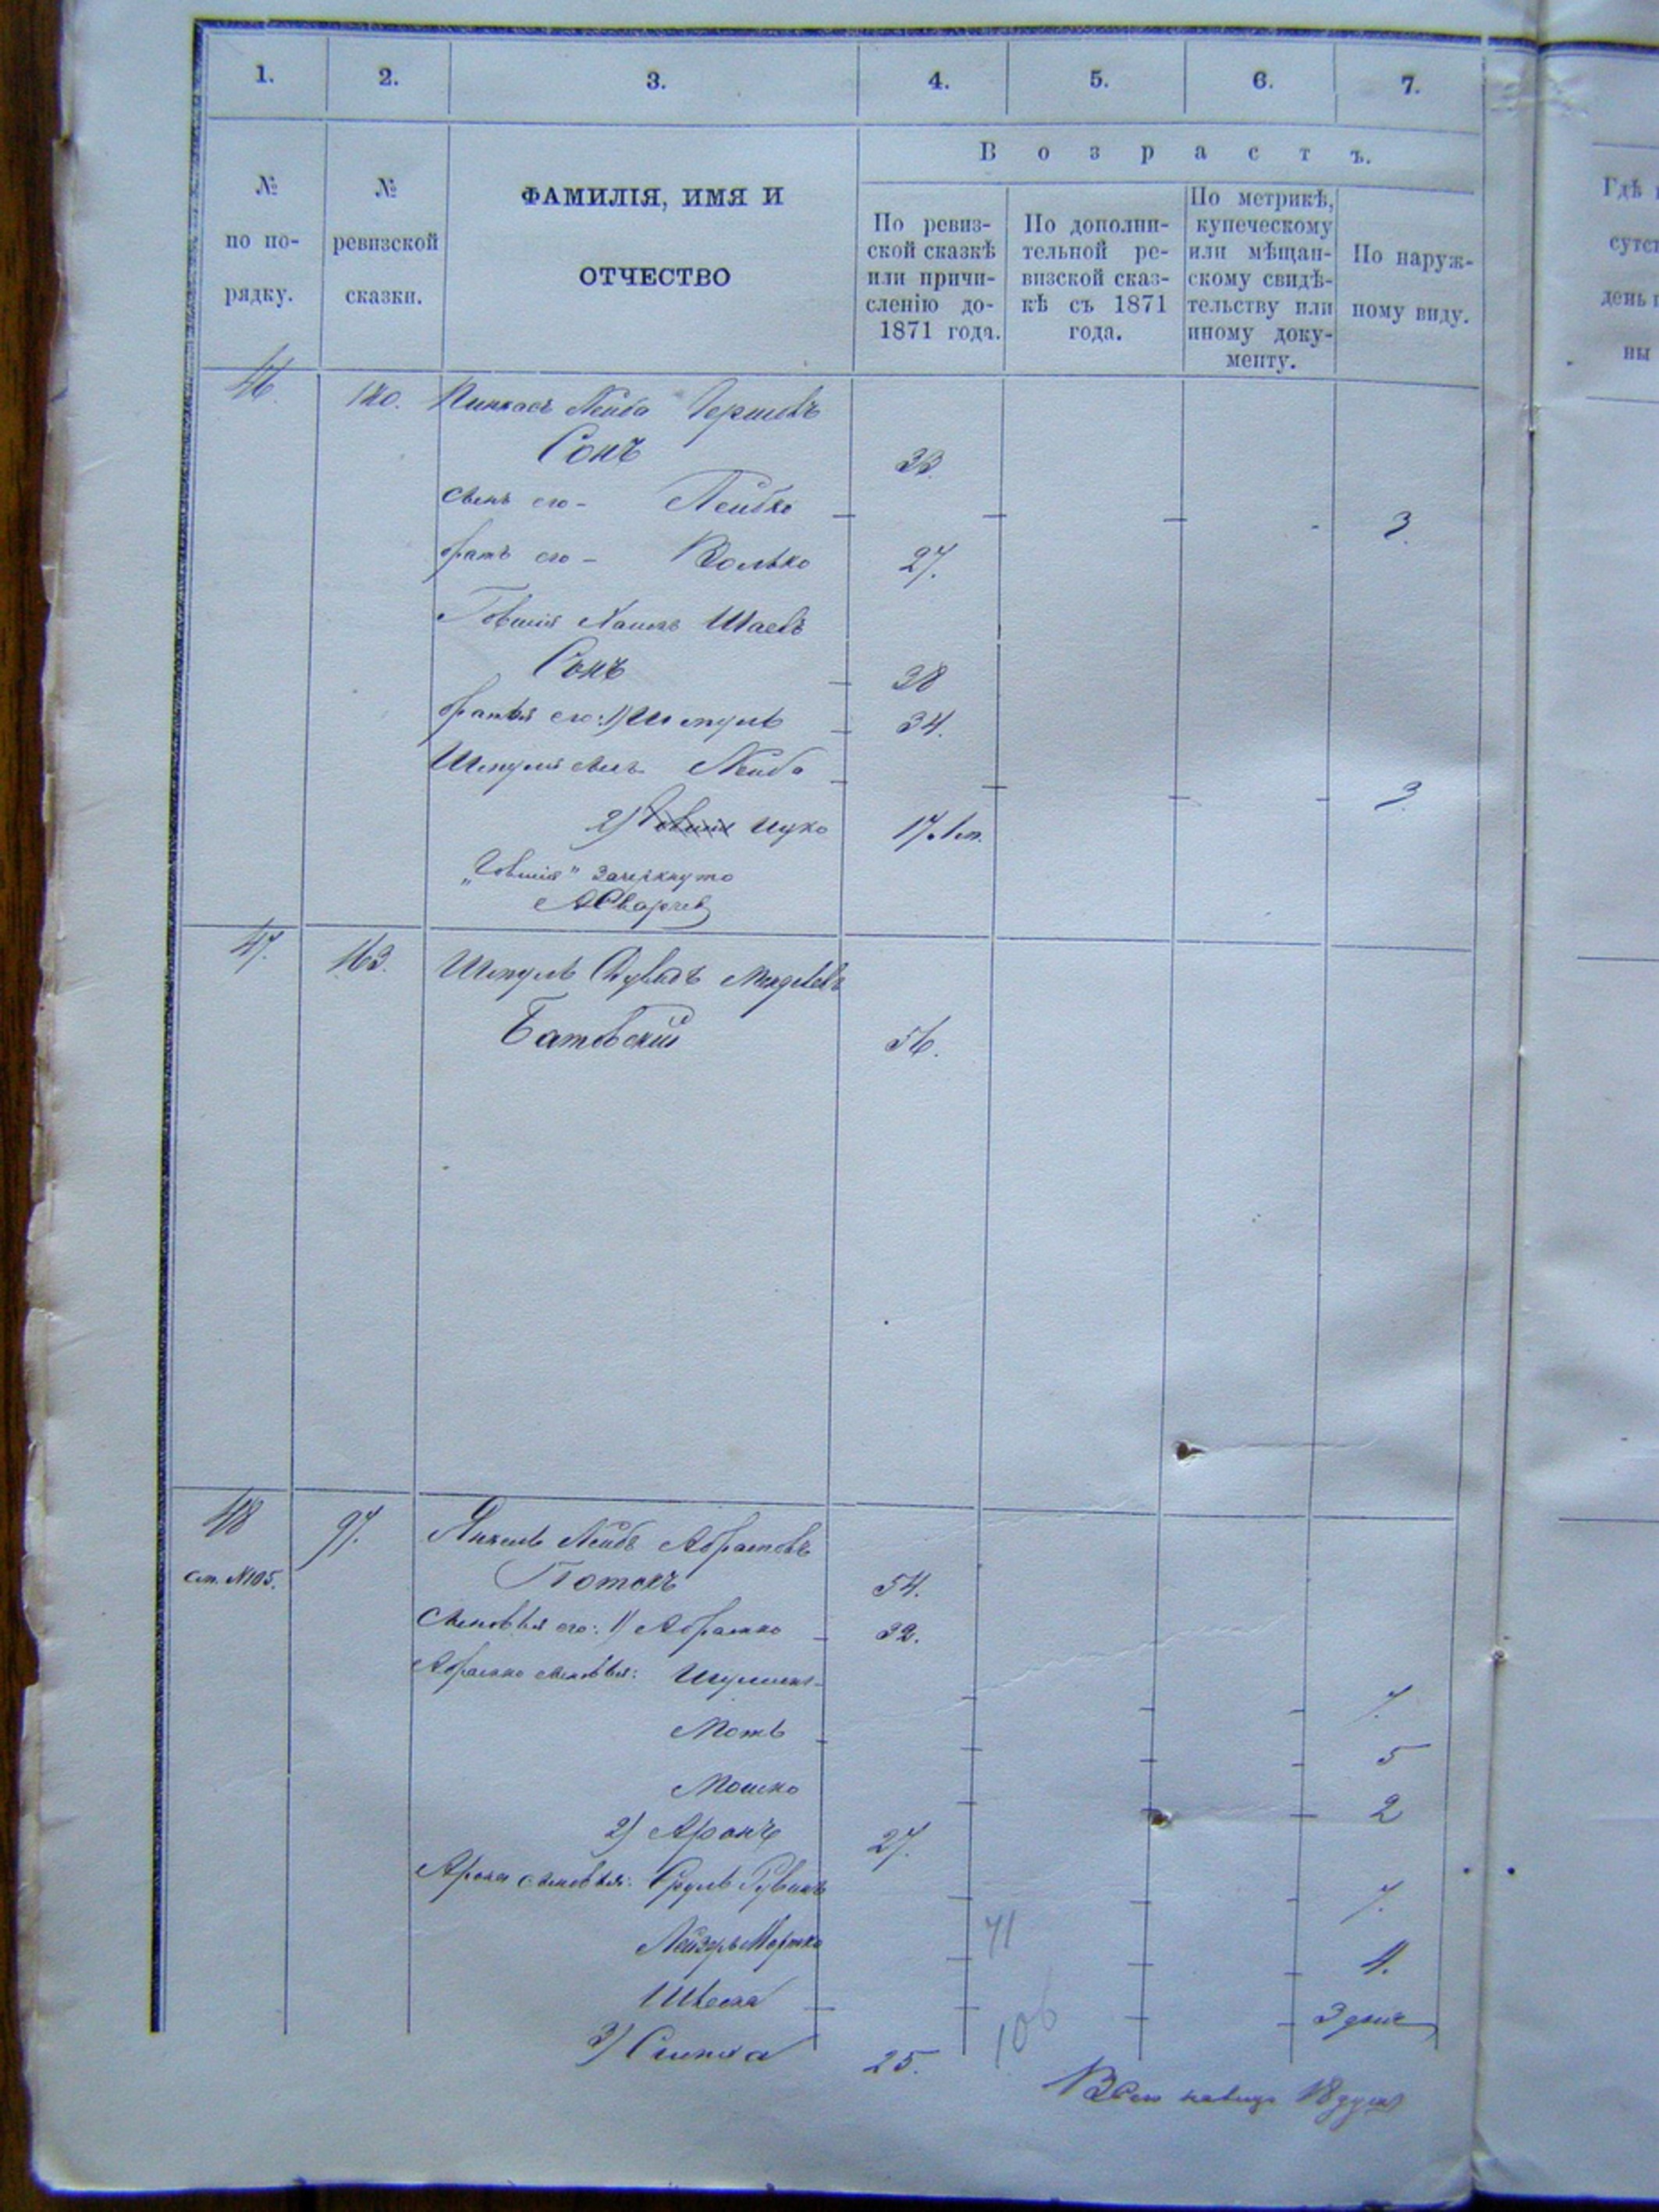 1. 2. 3. 4. 5. 6. 7.
№ по по-рядку.
№ ревизской сказки.
ФАМИЛІЯ, ИМЯ И
ОТЧЕСТВО
Возрастъ.
По ревиз-
ской сказкѣ
или причи-
сленію до-
1871 года.
По дополни-
тельной ре-
визской сказ-
кѣ съ 1871
года.
По метрикѣ,
купеческому
или мѣщан-
скому свидѣ-
тельству или
иному доку-
менту.
По наруж-
ному виду.
Гдѣ
сутст
день
ны
46. 120. Пинхасъ Лейба Гершовъ
Сонъ 33.
сынъ его - Лейбко 3.
братъ его - Волько 27.
Говшія Хаимъ Шаевъ
Сонъ 38
братья его: 1) Шмуль 34.
Шмуля сынъ Лейба 3
2) Говшія Ицко 17 лѣт.
„Говшія" зачеркнуто
47. 163. Шмуль Дувидъ Менделевъ
Батовскій 56.
48 97. Янкель Лейбъ Абрамовъ
см. №105. Потокъ 54.
Сыновья его: 1) Абрамко 32.
Абрамка сыновья: 7.
Моть 5
Мошко 2
2) Аронъ 27.
Арона сыновья: Сруль Рувинъ 7.
Лейзеръ Мортко 4.
71
3 дня
106
3) Симха 25.
Всего 18 душъ